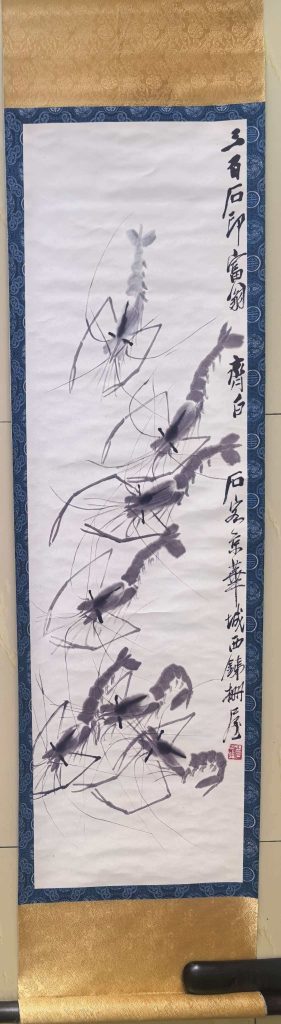 三百石印富翁齊白石客京華城西鐵栅屋